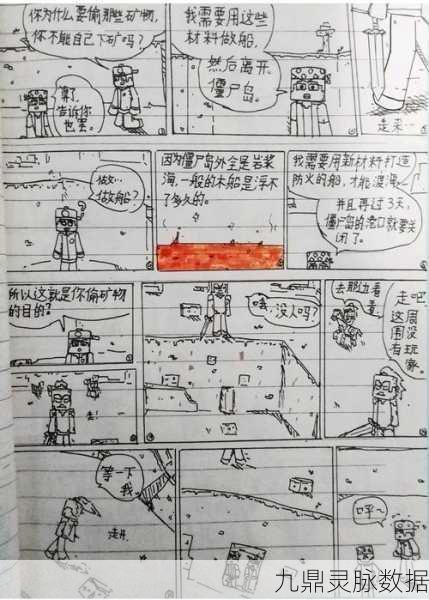 你为什么要偷那些矿物,
你不能自己下矿吗?
算了,
告诉你
也罢。
我需要用这些
材料做船,
然后离开
僵尸岛。
走来…
做…
做船?
因为僵尸岛外全是岩浆
海,一般的木船是浮不
了多久的。
我需要用新材料打造
防火的船,才能渡海,
并且再过3天,
僵尸岛的港口就要关
闭了。
所以这就是你偷矿物
的目的?
咦,没人吗?
去那边看
看。
走吧,
这周
围没
有玩
家。
走!
等一下
我
走开
呼~
九鼎灵脉数据